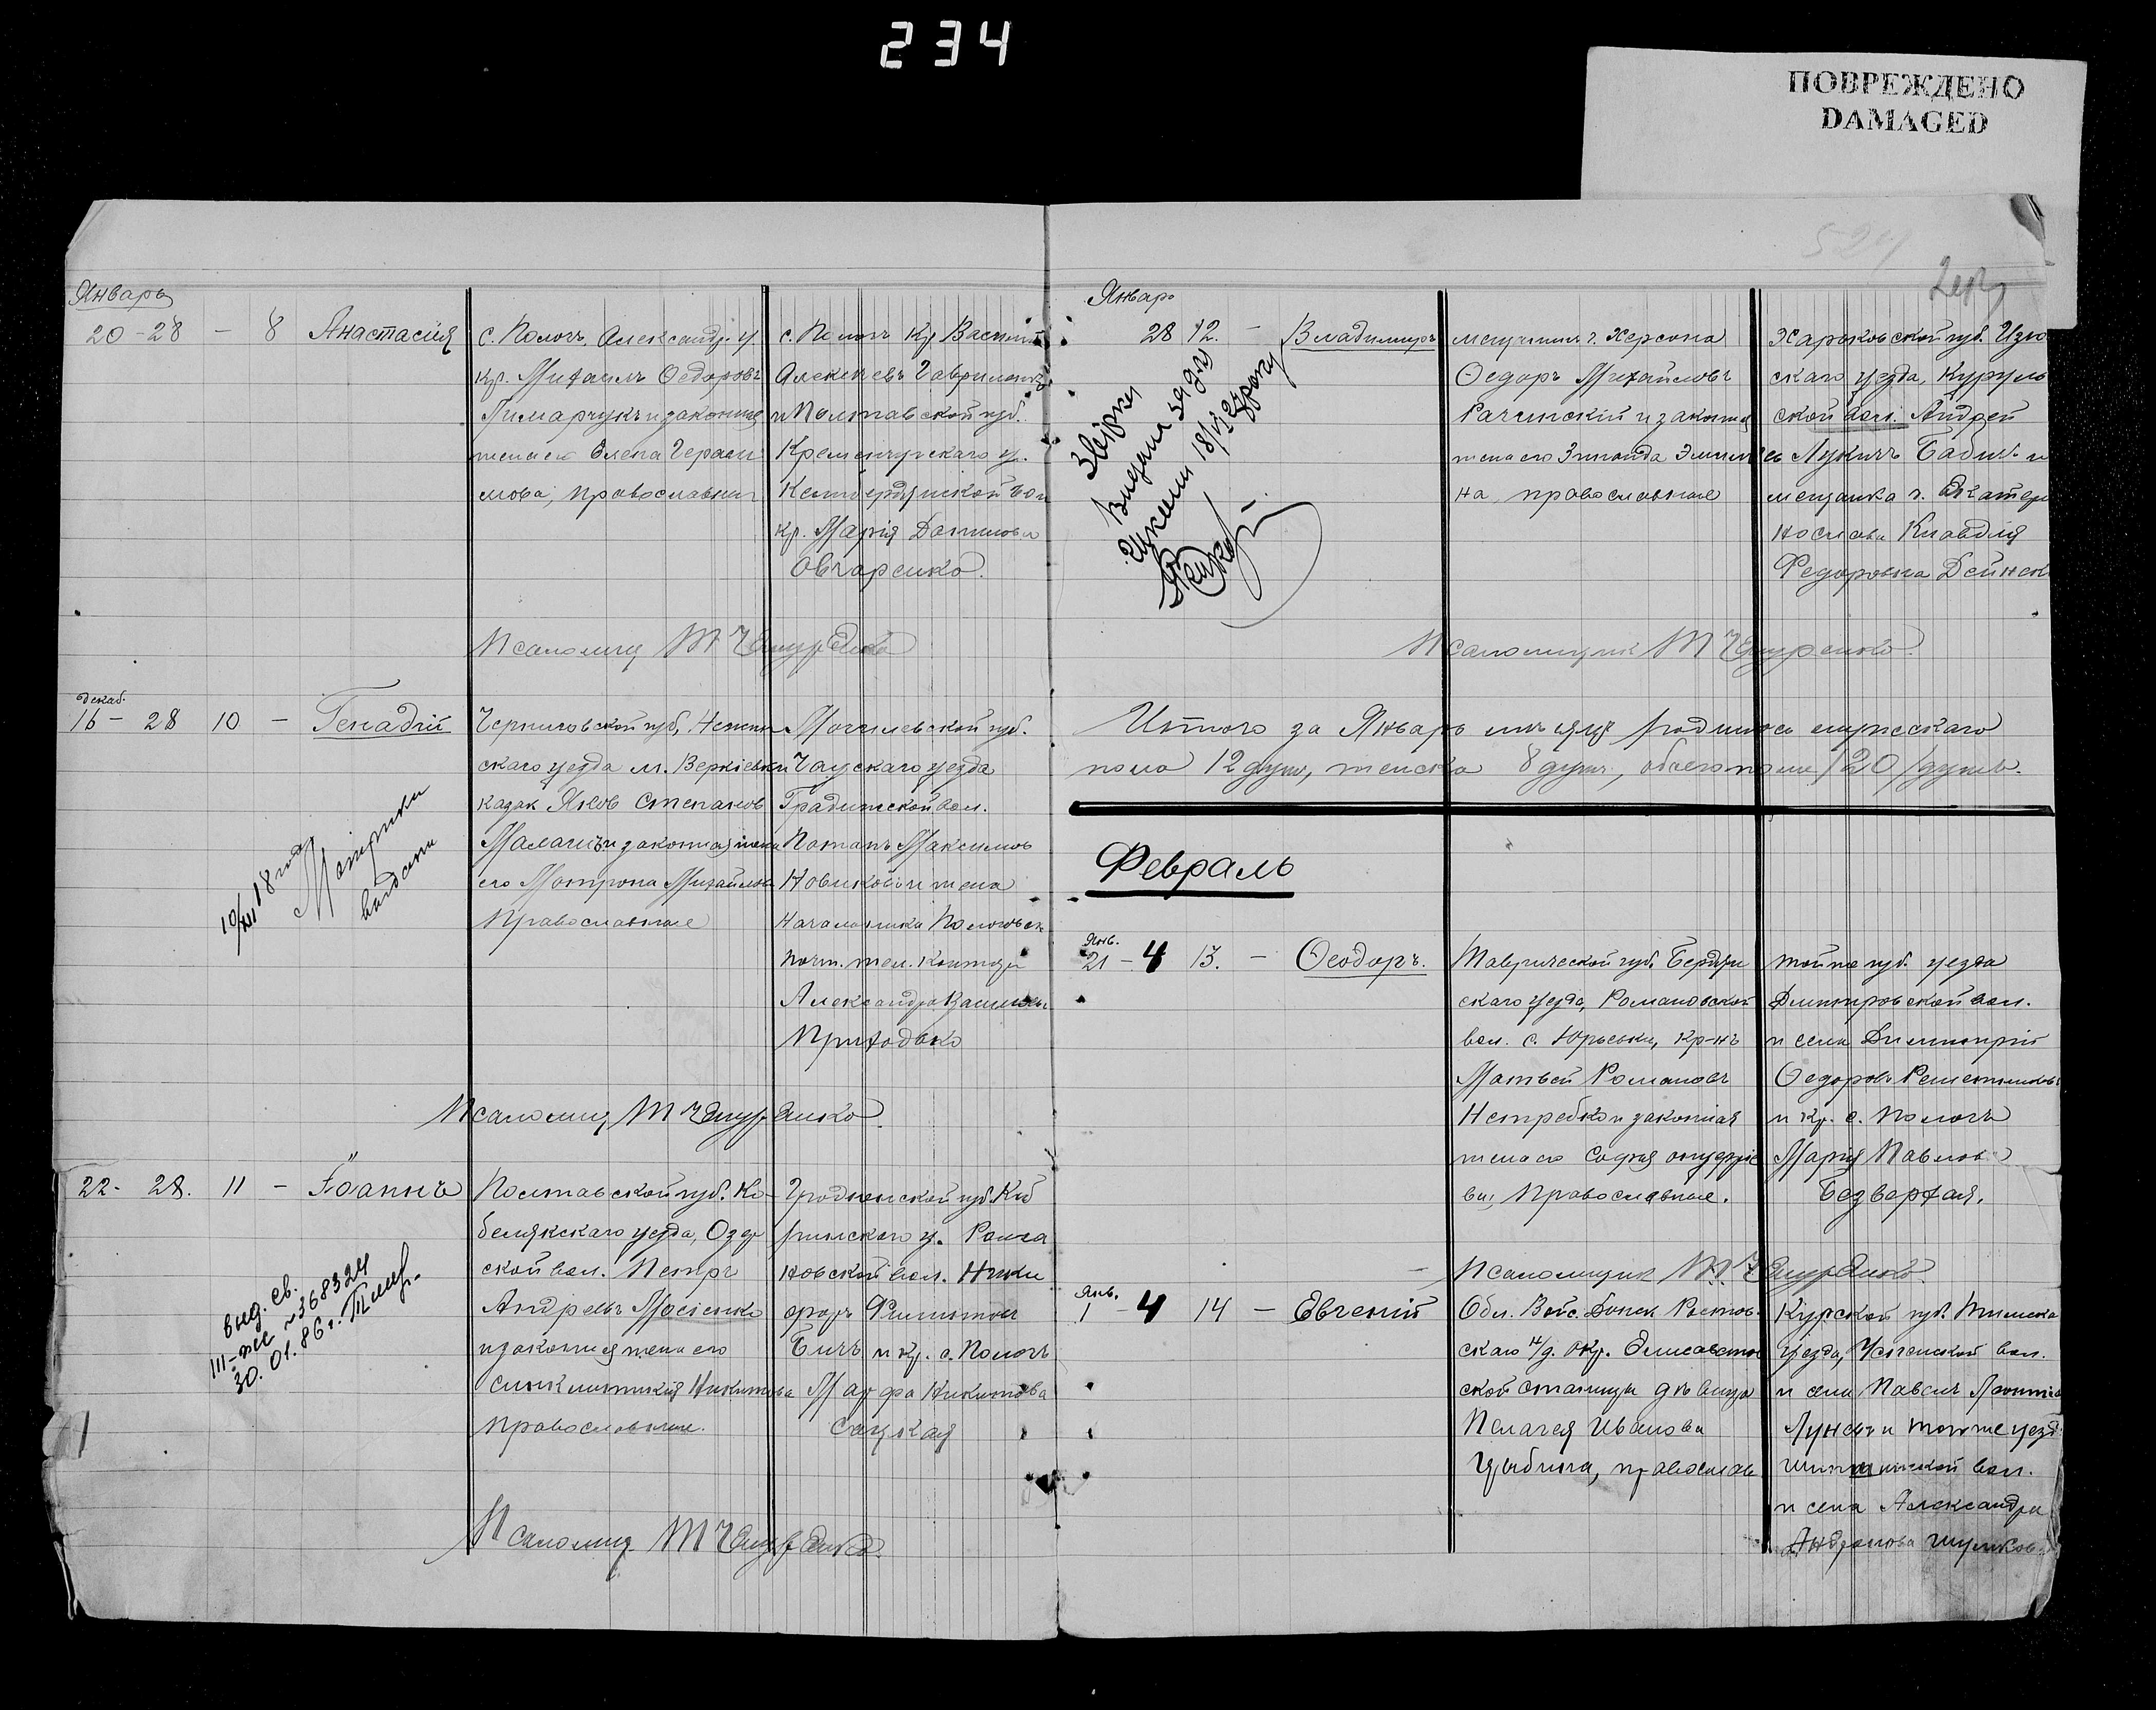 234
ПОВРЕЖДЕНО
DAMAGED
524
Январь
20-28 - 8 Анастасия
с. Пологъ, Александр. у.
кр. Михаилъ Ѳедоровъ
Гимарчукъ и законная
жена его Елена Гераси
мова, православные
с. Пологъ Кр. Василий
Алексеевъ Гавриленко
и Полтавской губ.
Кременчугскаго у.
вол
кр. Марія Данилова
Овчаренко.
Псаломщ М
декаб.
16 - 28 10 - Генадій
Черниговской губ, Нежин
скаго уезда м. Веркіевки
казак Яков Степанов
Маланъ и законная жена
его Матрона Михайлова
Православные
Могилевской губ.
Чаускаго уезда
Градижской вол.
Потапъ Максимов
Новиковъ и жена
Начальника Пологовск
почт. тел. конторы
Александра
Приходько
10/XII 18 год
Метрики
выдани
Псаломщ М
22 - 28. 11 - Іоаннъ
Полтавской губ. Ко
белякскаго уезда,
ской вол. Петръ
Андреевъ Мосіенко
и законная жена его
синклитикія Никитова
православные.
Гродненской губ. Коб
ринскаго у.
новской вол. Ники
форъ Филиппов
Бичъ и кр. с. Пологъ
Марфа Никитова
Сацкая
выд. св.
III-ЖС №368324
30.01.86г.
Псаломщ М
Январ.
28 12. - Владимиръ
мещанинъ г. Херсона
Ѳедоръ Михайловъ
Рачинский и законная
жена его Зинаида Эмильев
на, православные
Харьковской губ. Изю
скаго уезда, Куруль
ской вол. Андрей
Лукичъ Бабичъ и
мещанка г. Екатери
нослава Клавдія
Федоровна Дейнек
Псаломщик М
Итого за Январь месяцъ родилось мужескаго
пола 12 душъ, женска 8 душъ, обоего пола /20/ душъ.
Февраль
Янв.
21 - 4 13. - Ѳеодоръ.
Таврической губ. Бердян
скаго уезда, Романовской
вол. с. Юрьевки, кр-нъ
Матвей Романовъ
Нетребко и законная
жена его Софія Онуфріе
ва, Православные.
той же губ. уезда
Дмитровской вол.
и села Димитрій
Ѳедоровъ Решетниковъ
и кр. с. Пологъ
Марія Павлов
Безверхая.
Псаломщик М.
Янв.
1 - 4 14 - Евгеній
Обл. Войс. Донск Ростов
скаго н/д. окр. Елисаветов
ской станицы девица
Пелагея Иванова
Цыбина, православ
Курской губ. Тимска
уезда, Успенской вол.
и села Павелъ
Луневъ и того же уезд
вол.
и села Александра
Андронова Шумков